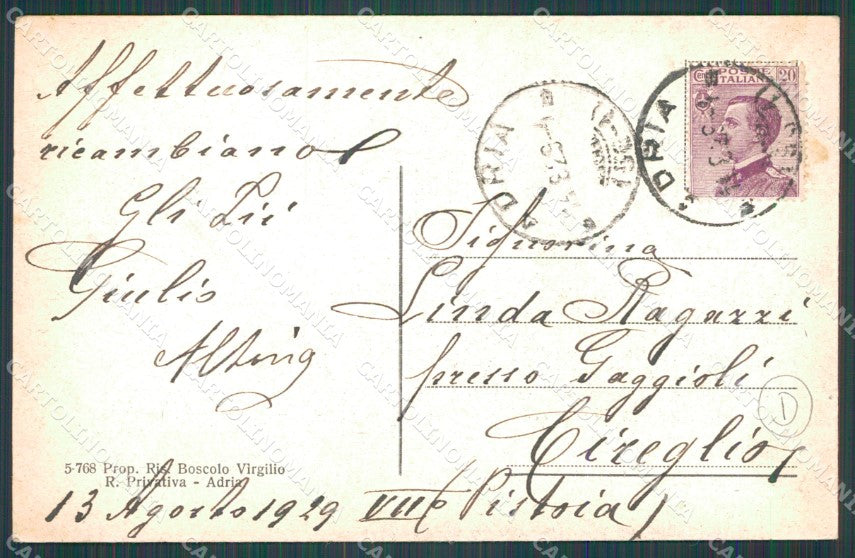 Affettuosamente
ricambiano
Gli Zii
Giulio
5-768 Prop. Ris. Boscolo Virgilio
R. Privativa - Adria
13 Agosto 1929 VII°
POSTE
ITALIANE
Cent. 20
ADRIA
ADRIA
Signorina
Linda Ragazzi
presso Gaggioli
Cireglio
(Pistoia)
1
CARTOLINOMANIA